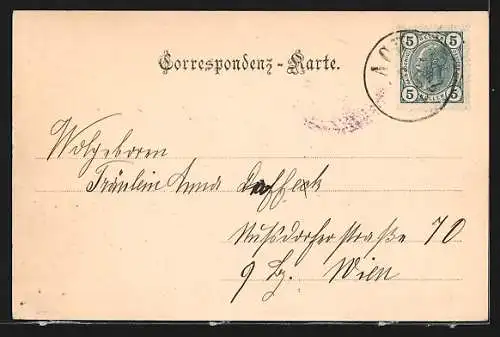 Correspondenz-Karte.
5 5
5 5
Wolgeboren
Fräulein Anna
Nussdorferstraße 70
9 Bz. Wien